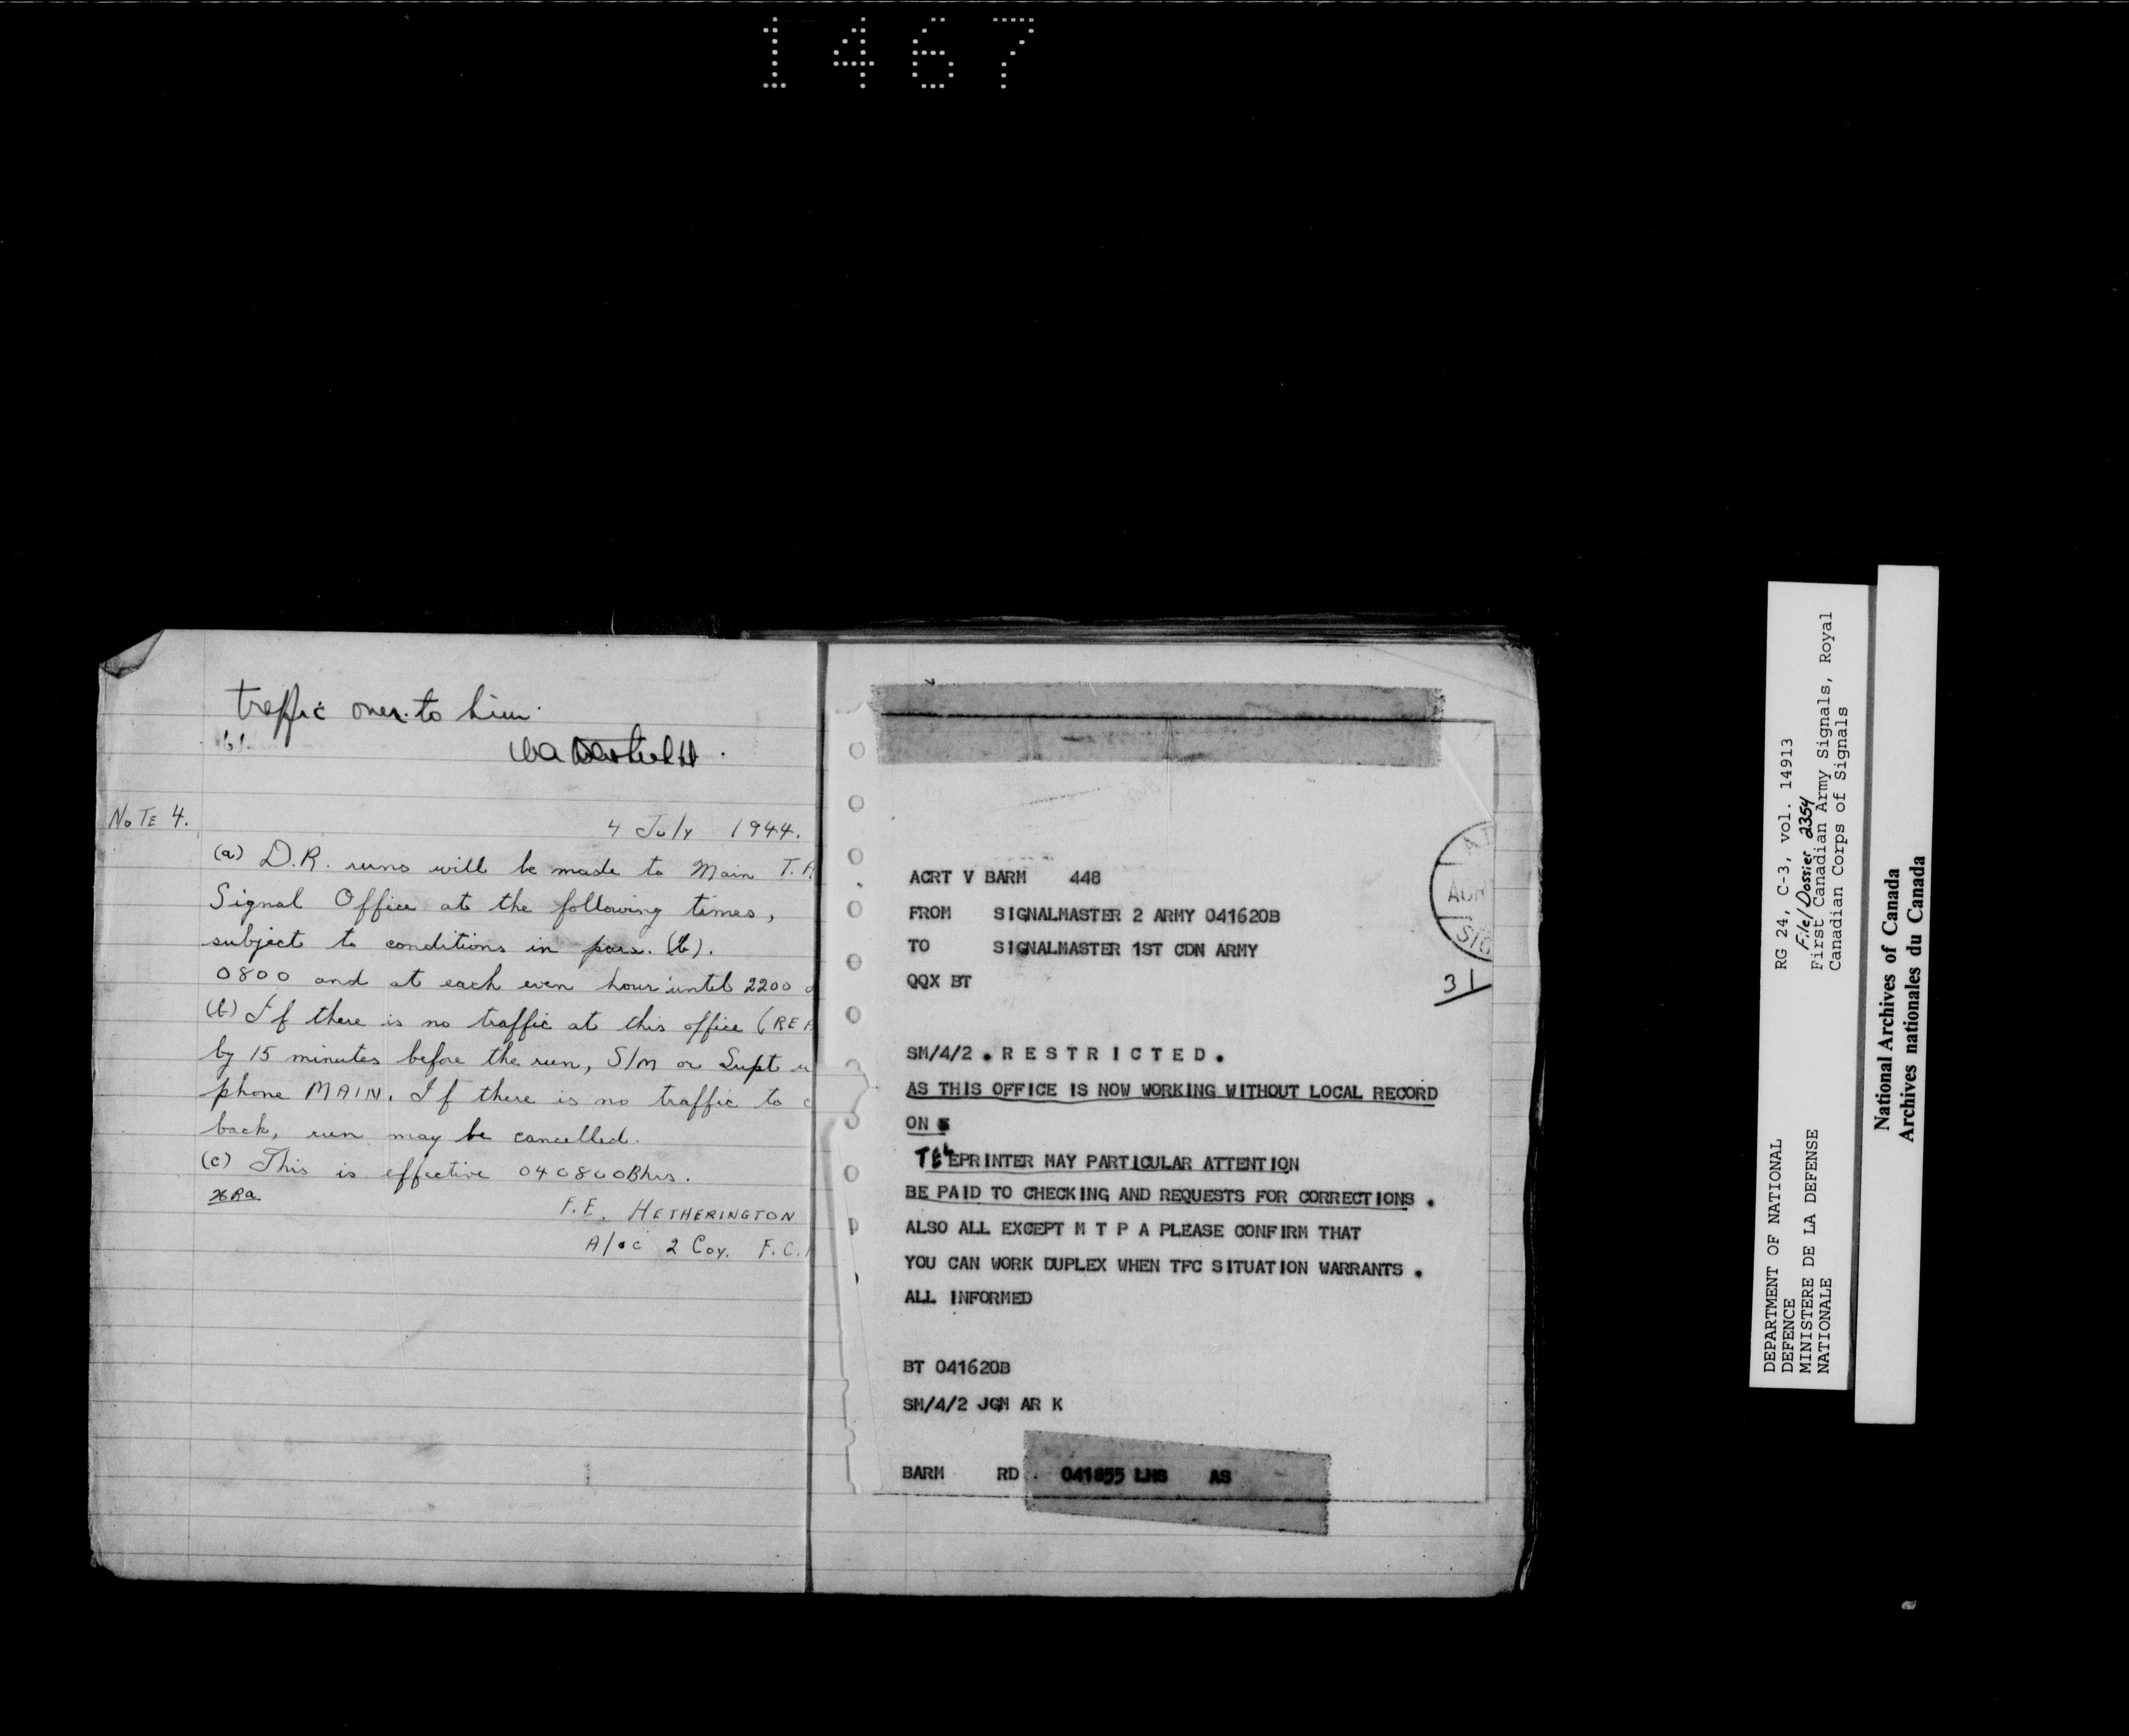 1467
traffic over to him.
NOTE 4.
4 July 1944.
(a) D.R. runs will be made to Main T.A
Signal Office at the following times,
subject to conditions in para. (b).
0800 and at each even hour until 2200
(b) If there is no traffic at this office (REA
by 15 minutes before the run, S/M or Supt
phone MAIN. If there is no traffic to
back, run may be cancelled.
(c) This is effective 040800Bhrs.
F.E. HETHERINGTON
A/OC 2 Coy. F.C.
ACRT V BARM 448
FROM SIGNALMASTER 2 ARMY 041620B
TO SIGNALMASTER 1ST CDN ARMY
QQX BT
31
SM/4/2 . R E S T R I C T E D .
AS THIS OFFICE IS NOW WORKING WITHOUT LOCAL RECORD
ON
TELEPRINTER MAY PARTICULAR ATTENTION
BE PAID TO CHECKING AND REQUESTS FOR CORRECTIONS .
ALSO ALL EXCEPT M T P A PLEASE CONFIRM THAT
YOU CAN WORK DUPLEX WHEN TFC SITUATION WARRANTS .
ALL INFORMED
BT 041620B
SM/4/2 JGM AR K
BARM RD . 041855 LHS AS
DEPARTMENT OF NATIONAL
DEFENCE
MINISTERE DE LA DEFENSE
NATIONALE
RG 24, C-3, vol. 14913
File/Dossier 2354
First Canadian Army Signals, Royal
Canadian Corps of Signals
National Archives of Canada
Archives nationales du Canada